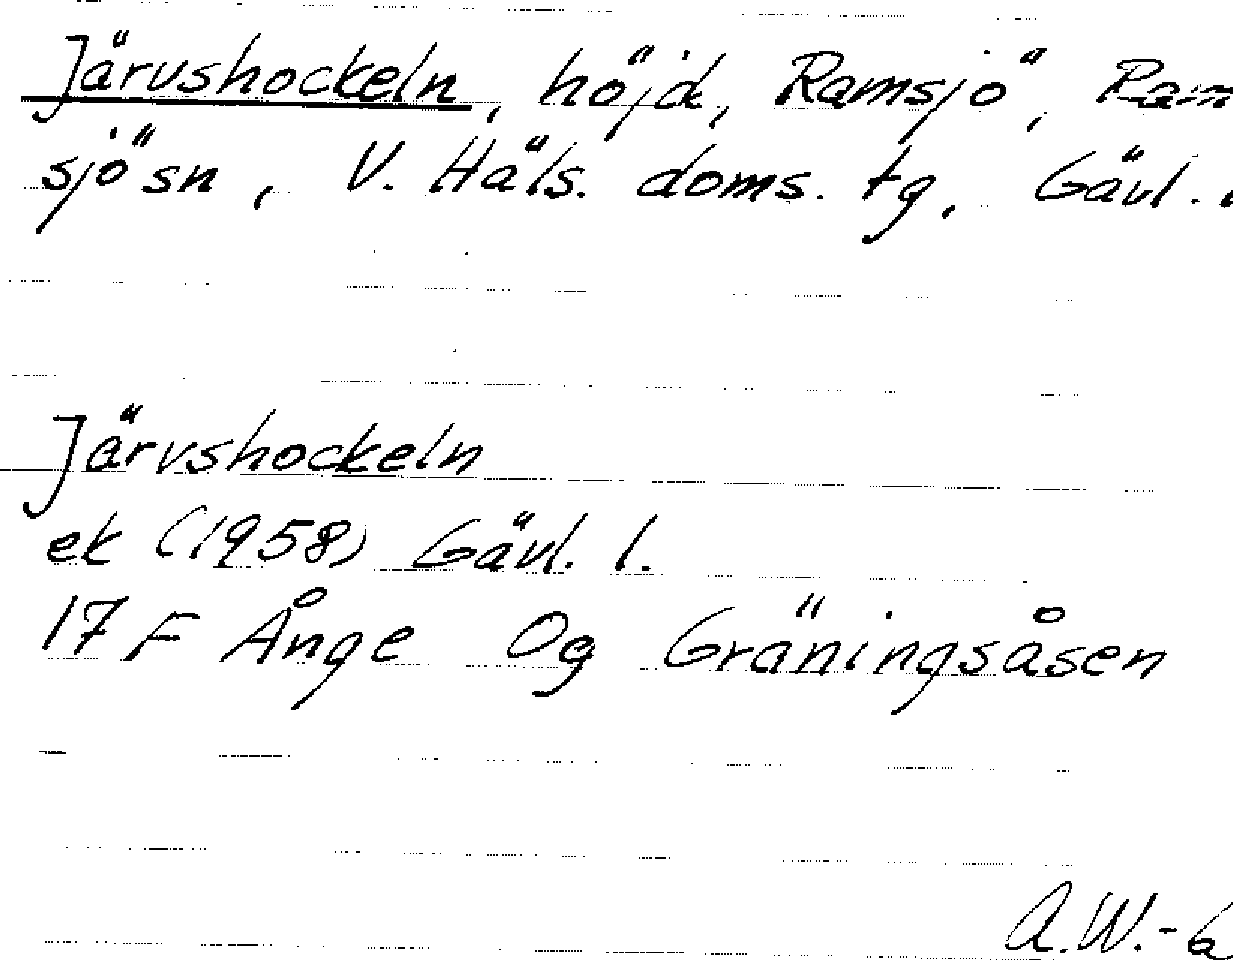 Järvshockeln, höjd, Ramsjö, Ram
sjösn, V. Häls. doms. tg, Gävl. l
Järvshockeln
ek (1958) Gävl. l.
17 F Ånge Og Gräningsåsen
A.W.-6